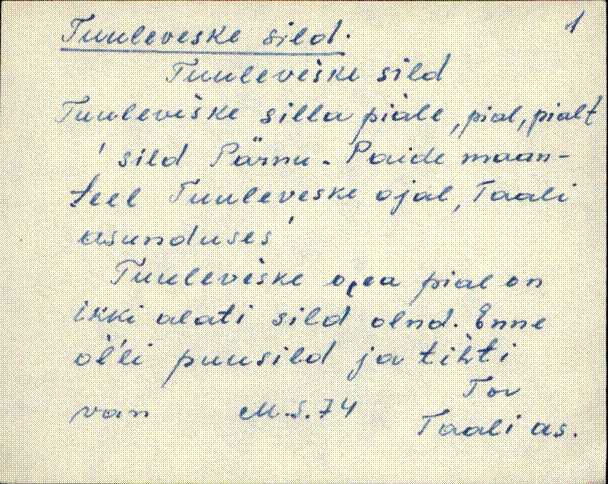 1
Tuuleveske sild.
Tuuleveśke sild
Tuuleveśke silla piàle, pial, pialt
' sild Pärnu-Paide maan-
teel Tuuleveske ojal, Taali
asunduses '
Tuuleveśke ojea pial on
ikki alati sild olnd. Enne
oĺli puusild ja tihti
Tor
van M.S.74
Taali as.